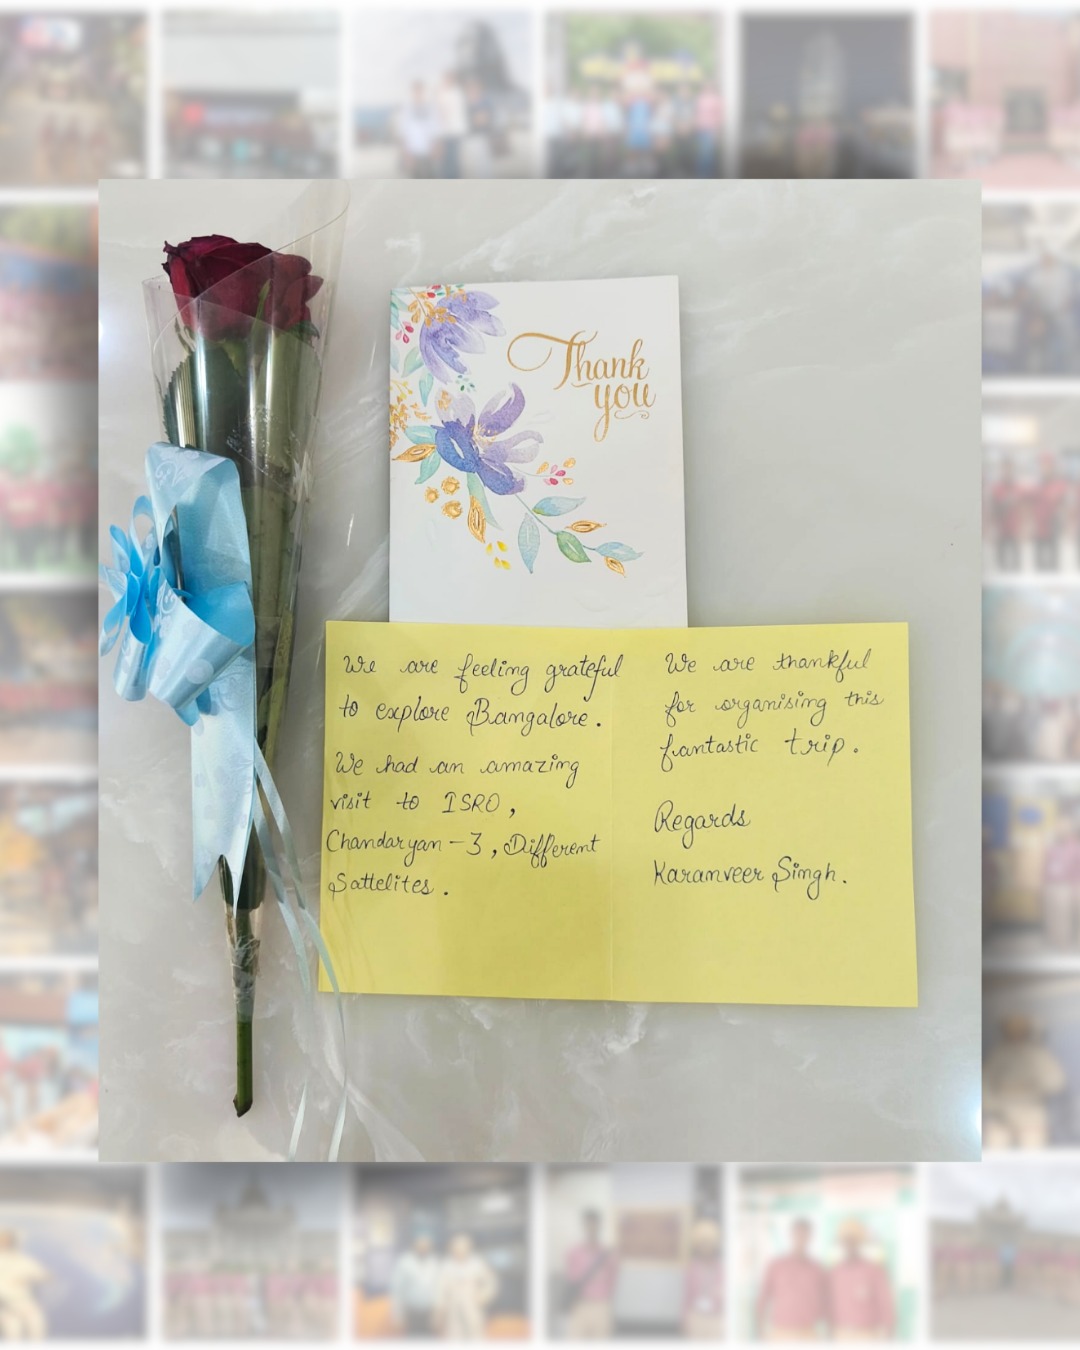 Thank
you
We are feeling grateful
to explore Bangalore.
We had an amazing
visit to ISRO,
Chandaryan-3, Different
Sattelites.
We are thankful
for organising this
fantastic trip.
Regards
Karanveer Singh.